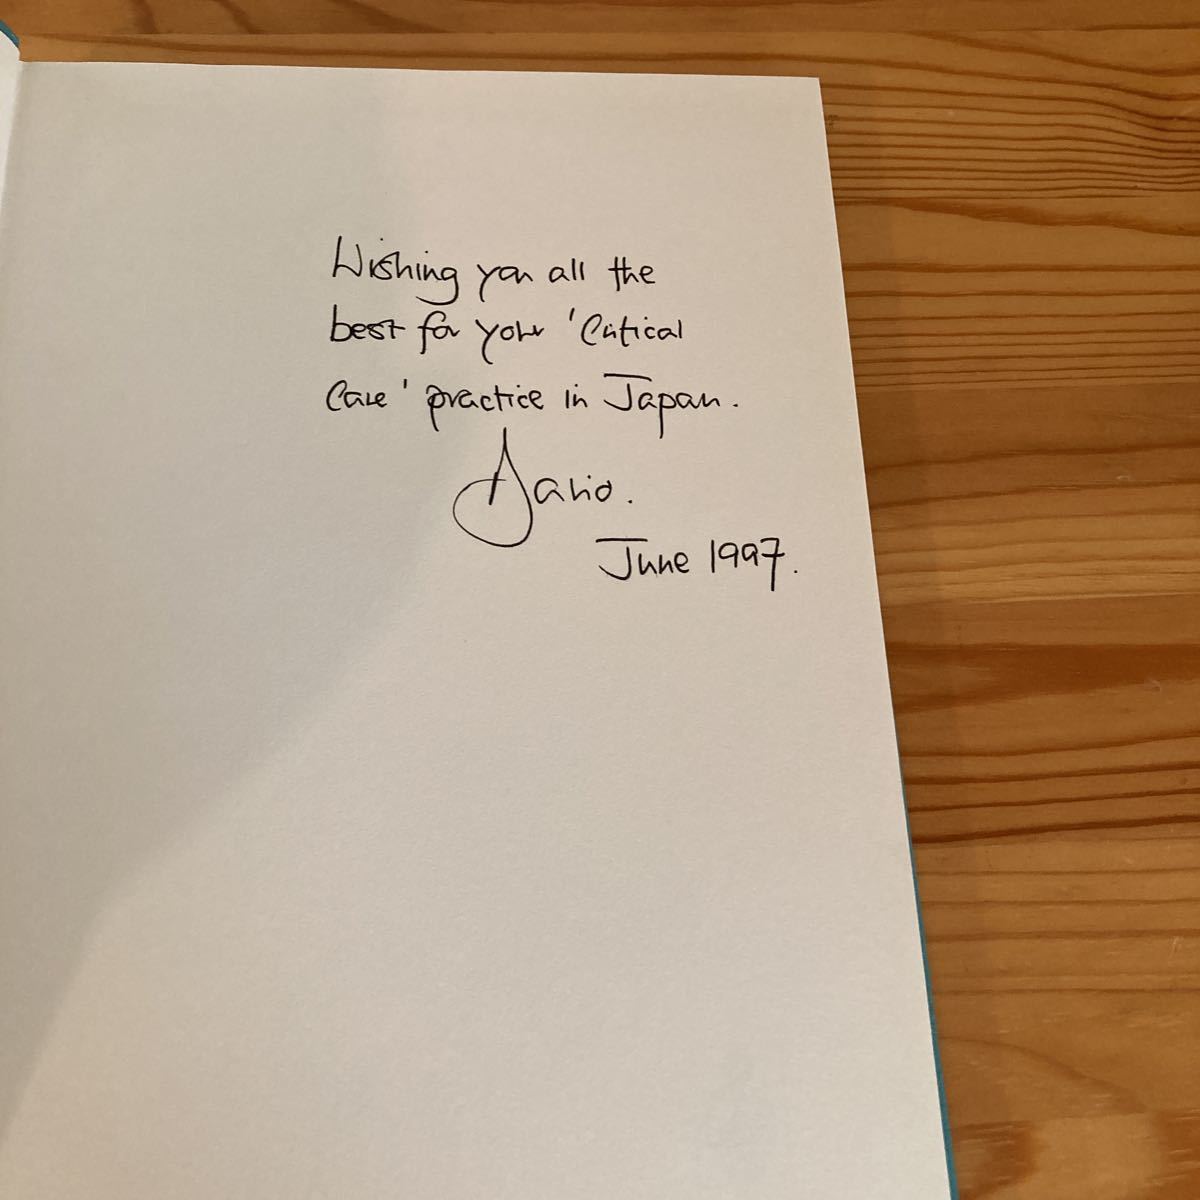 Wishing you all the
best for your 'Critical
Care' practice in Japan.
Dario.
June 1997.